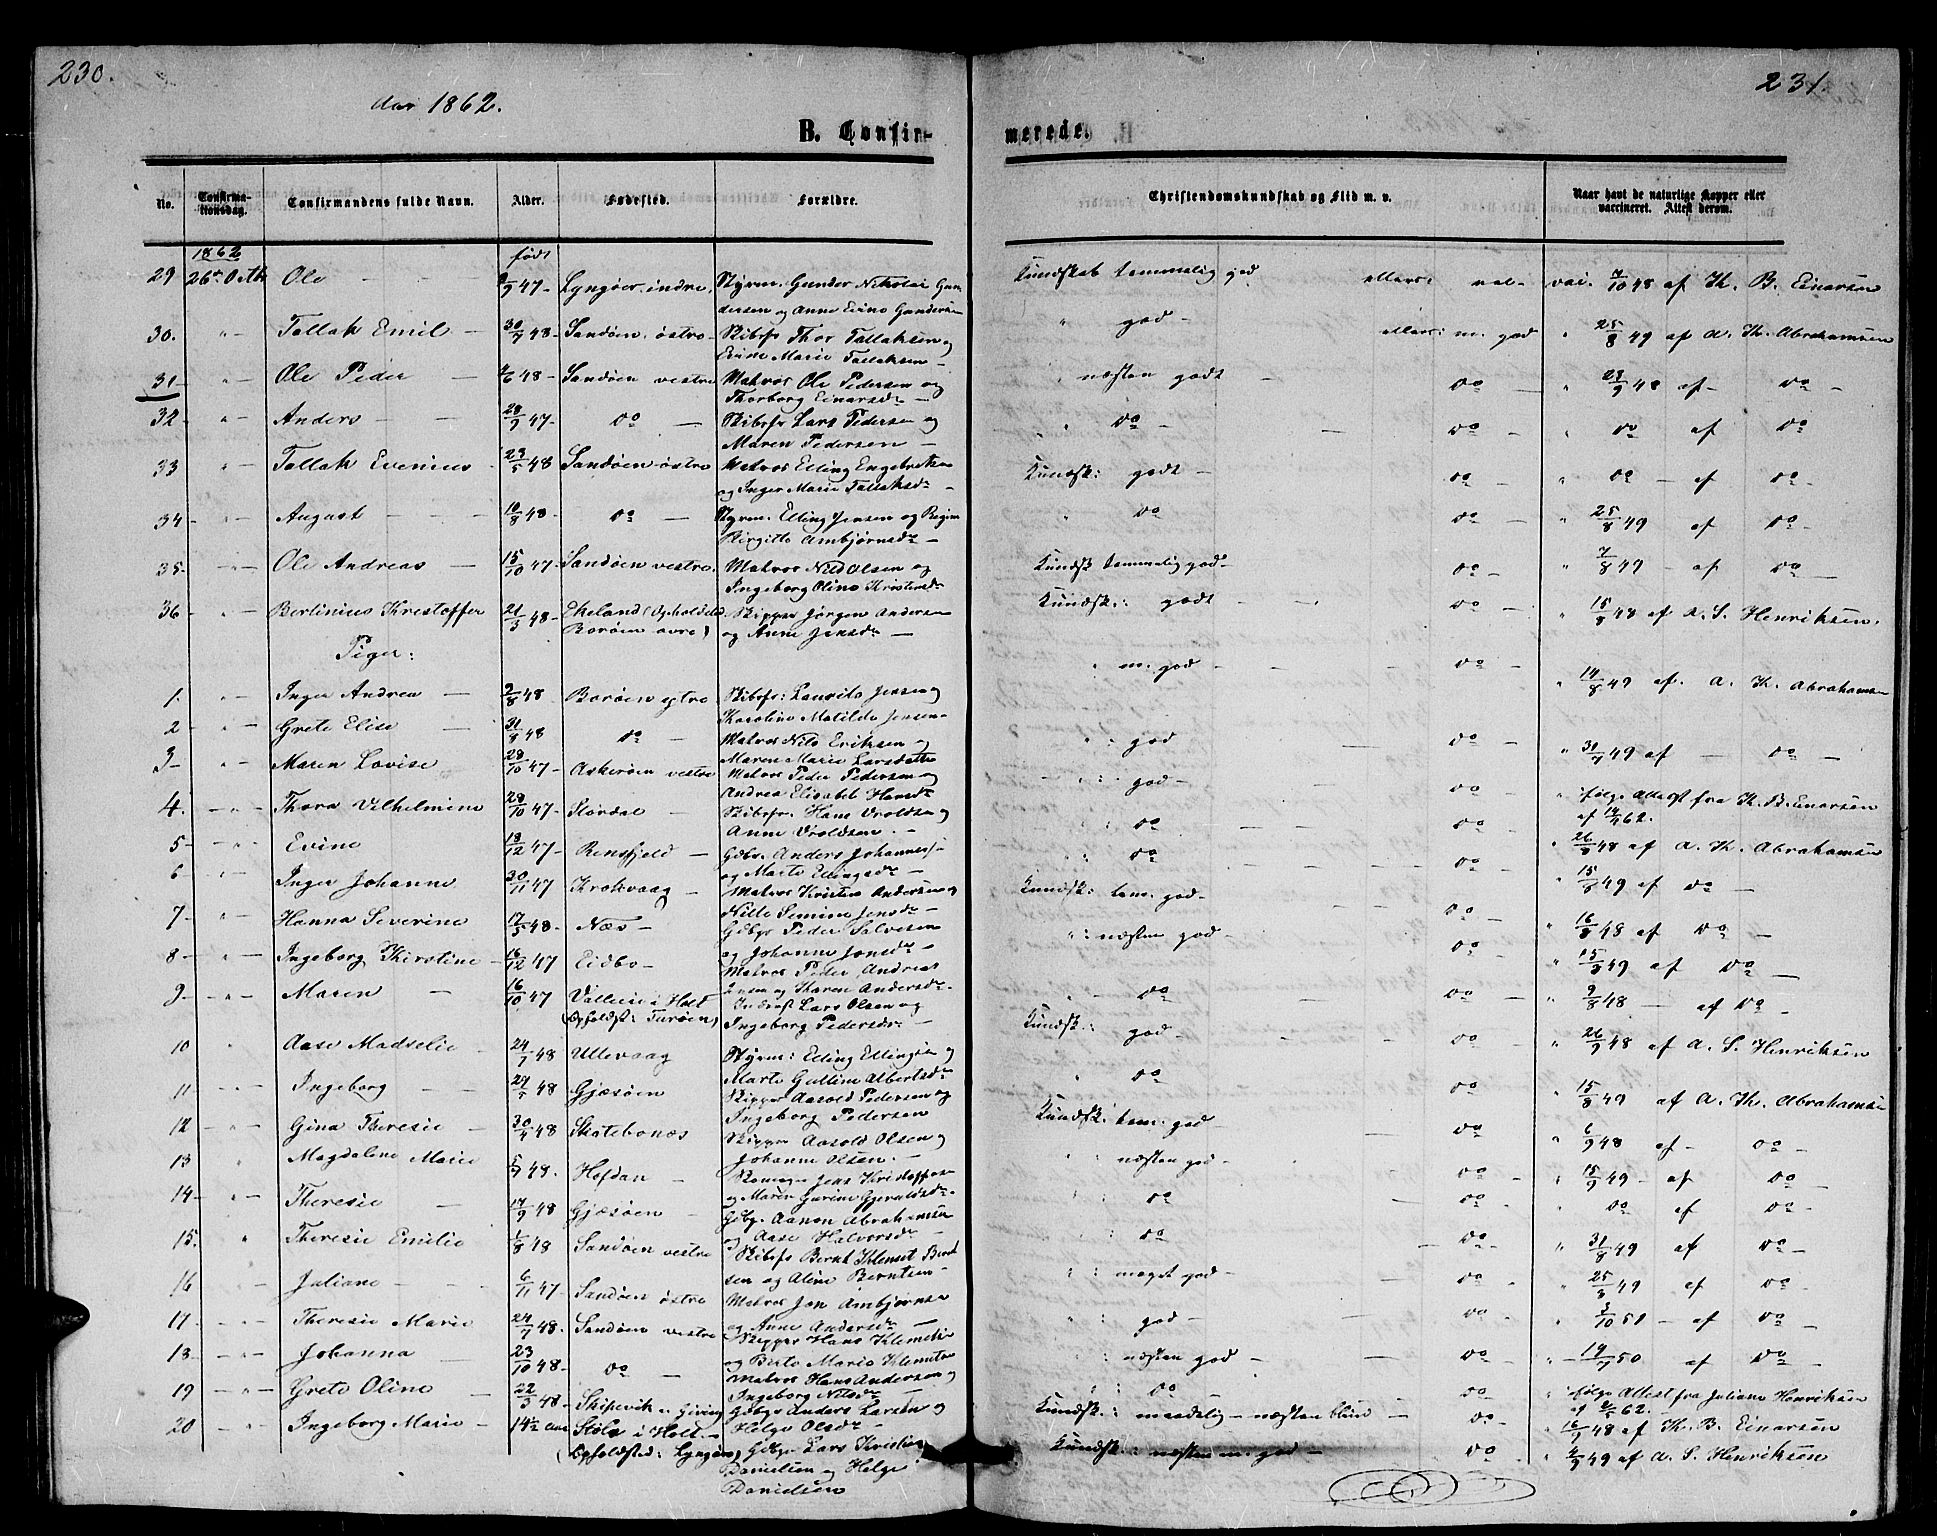 230.
231.
Aar 1862.
B. Confir-
merede.
No.
Confirma-
tionsdag.
Confirmandens fulde Navn.
Alder.
Fødested.
Forældre.
Christendomskundskab og Flid m. v.
Naar havt de naturlige Kopper eller
vaccineret. Attest derom.
1862
født
29 26de Octbr Ole 47 - Lyngøer indre. Styrm. Gunder Nikolai Gun
dersen og Anne Evine Gundersen
30. " Tallak Emil 30/7 48 - Sandøen østre - Skibsfr Thor Tallaksen og
Evine Marie Tallaksen -
31 - " Ole Peder 4/6 48 - Sandøen vestre Matros Ole Pedersen og
Thorborg Einarsdr -
32 - " Anders 28/9 47 - do Skibsfr Lars Pedersen og
Maren Pedersen -
33 " Tallak Evenius 23/5 48 Sandøen østre Matros Elling Engebretsen
og Inger Marie Tallaksdr -
34 - " August 10/8 48 do Styrm. Elling Jensen og
Birgitte Ambjørnsdr -
35 - " Ole Andreas 15/10 47 - Sandøen vestre. Matros Nils Olsen og
Ingeborg Oline Kristensdr
36 " Berlinius Kristoffer 21/5 48 - Ekeland (Opholdsted Skipper Jørgen Andersen
Borøen øvre) og Anne Jensdr -
Piger:
1. " Inger Andrea 9/8 48 Borøen ytre Skibsfr: Laurits Jensen og
Karoline Matilde Jensen
2 " Grete Elise 31/8 48 do Matros Nils Eriksen og
Maren Marie Larsdatter
3 - " Maren Lovise 28/10 47 - Askerøen vestre Matros Peder Pedersen og
Andrea Elisabet Hansdr
4 " Thora Vilhelmine 28/10 47 - Stordal Skibsfr. Hans Vroldsen og
Anne Vroldsen -
5 " Evine 18/12 47 - Rensfjeld Gdbr. Anders Johanness.
og Marte Ellingsdr -
6 " Inger Johanne 30/11 47 Krokvaag Matros Kristen Andersen og
Nille Semine Jensdr -
7 - " Hanna Severine 17/5 48 - Næs - Gdbgr Peder Salvesen
og Johanne Jonsdr -
8 " Ingeborg Kirstine - 16/12 47 Eidbo - Matros Peder Andreas
og Karen Andersdr -
9 - " Maren 16/10 47 Vallesii i Holt Inderst Lars Olsen og
(Opholdst: Furøen) Ingeborg Pedersdr: -
10 " Aase Madselie 24/7 48 Ullevaag Styrm: Elling Ellingsen og
Marte Gulline Albertsdr
11 - " Ingeborg 48 Gjæsøen Skipper Aasold Pedersen og
Ingeborg Pedersen
12 " Gina Theresie 30/4 48 Skatebonæs Skipper Aasold Olsen og
Johanne Olsen -
13 " Magdalene Marie 48. Hofdan Jens Kristoffers
og Maren Gurine Gjeraldsdr.
14 - " Theresie 17/9 48 Gjæsøen Gdbg. Aanon Abrahamsen
og Aase Halvorsdr -
15. " Theresie Emilie 1/8 48 Sandøen vestre Skibsfr Bernt Klemet Bernt
sen og Aline Berntsen -
16 " Juliane 6/11 47 Sandøen østre Matros Jon Ambjørnsen
og Anne Andersdr -
17. " Theresie Marie 24/7 48. Sandøen vestre Skipper Hans Klemetsen
og Berte Marie Klemetsen
18 - " Johanna 23/10 48 - do Matros Hans Andersen og
Ingeborg Nilsdr -
19 " Grete Oline 22/3 48 - Skipevik i Giving Gdbgr Anders Larsen og
Helge Olsdr -
20 " Ingeborg Marie 14½ aar Støle i Holt - Gdbgr Lars Kristian
(Opholdsted: Lyngøer) Danielsen og Helge
Danielsen
Kundskab temmelig god ellers: vel - vac. 7/10 48 af Th. B. Einarsen
" god - ellers: m. god " 25/8 49 af A. Th. Abrahamsen
" næsten godt - do - " 28/9 48 af - do -
" do - do - " do af do
Kundsk: godt - do - " do - af do -
" do do - " 25/8 49 af do -
Kundsk temmelig god - do - " 7/8 49 - af do -
Kundsk: godt - do - " 15/8 48 af A. S. Henriksen.
" m. god - do - " 14/8 49 af A. Th. Abrahamsen
" : god do - " 31/7 49 af - do -
" : god - do - " ifølge Attest fra Th. B. Einarsen
af 62.
" : do do - " 26/8 48 af A. Th. Abrahamsen
" : do - do - " 15/8 49 af do -
Kundsk: tem. god - do - " 16/8 48 af do -
" : næsten god - do - " 15/8 49 af do -
" do - do - " 9/8 48 - af do -
Kundsk: god - do - " 26/9 48 af A. S. Henriksen
" do - do - " 15/8 49 af A. Th. Abrahamsen
Kundsk: tem. god do - " 6/9 48 af - do -
" næsten god - do - " 15/9 49 - af do
" : do - do - " do af do
" : do do - " 31/8 49 af do -
" : meget god - do - " 25/3 49 af do -
" god - do - " 3/10 51 - af do -
" næsten god - do - " 50 af do -
" : do - do - " ifølge Attest fra Juliane Henriksen
af 62.
Kundsk: maadelig - næsten do - " 16/7 48 af Th. B. Einarsen
Kundsk: næsten m. god - do - " 4/9 49 af A. S. Henriksen